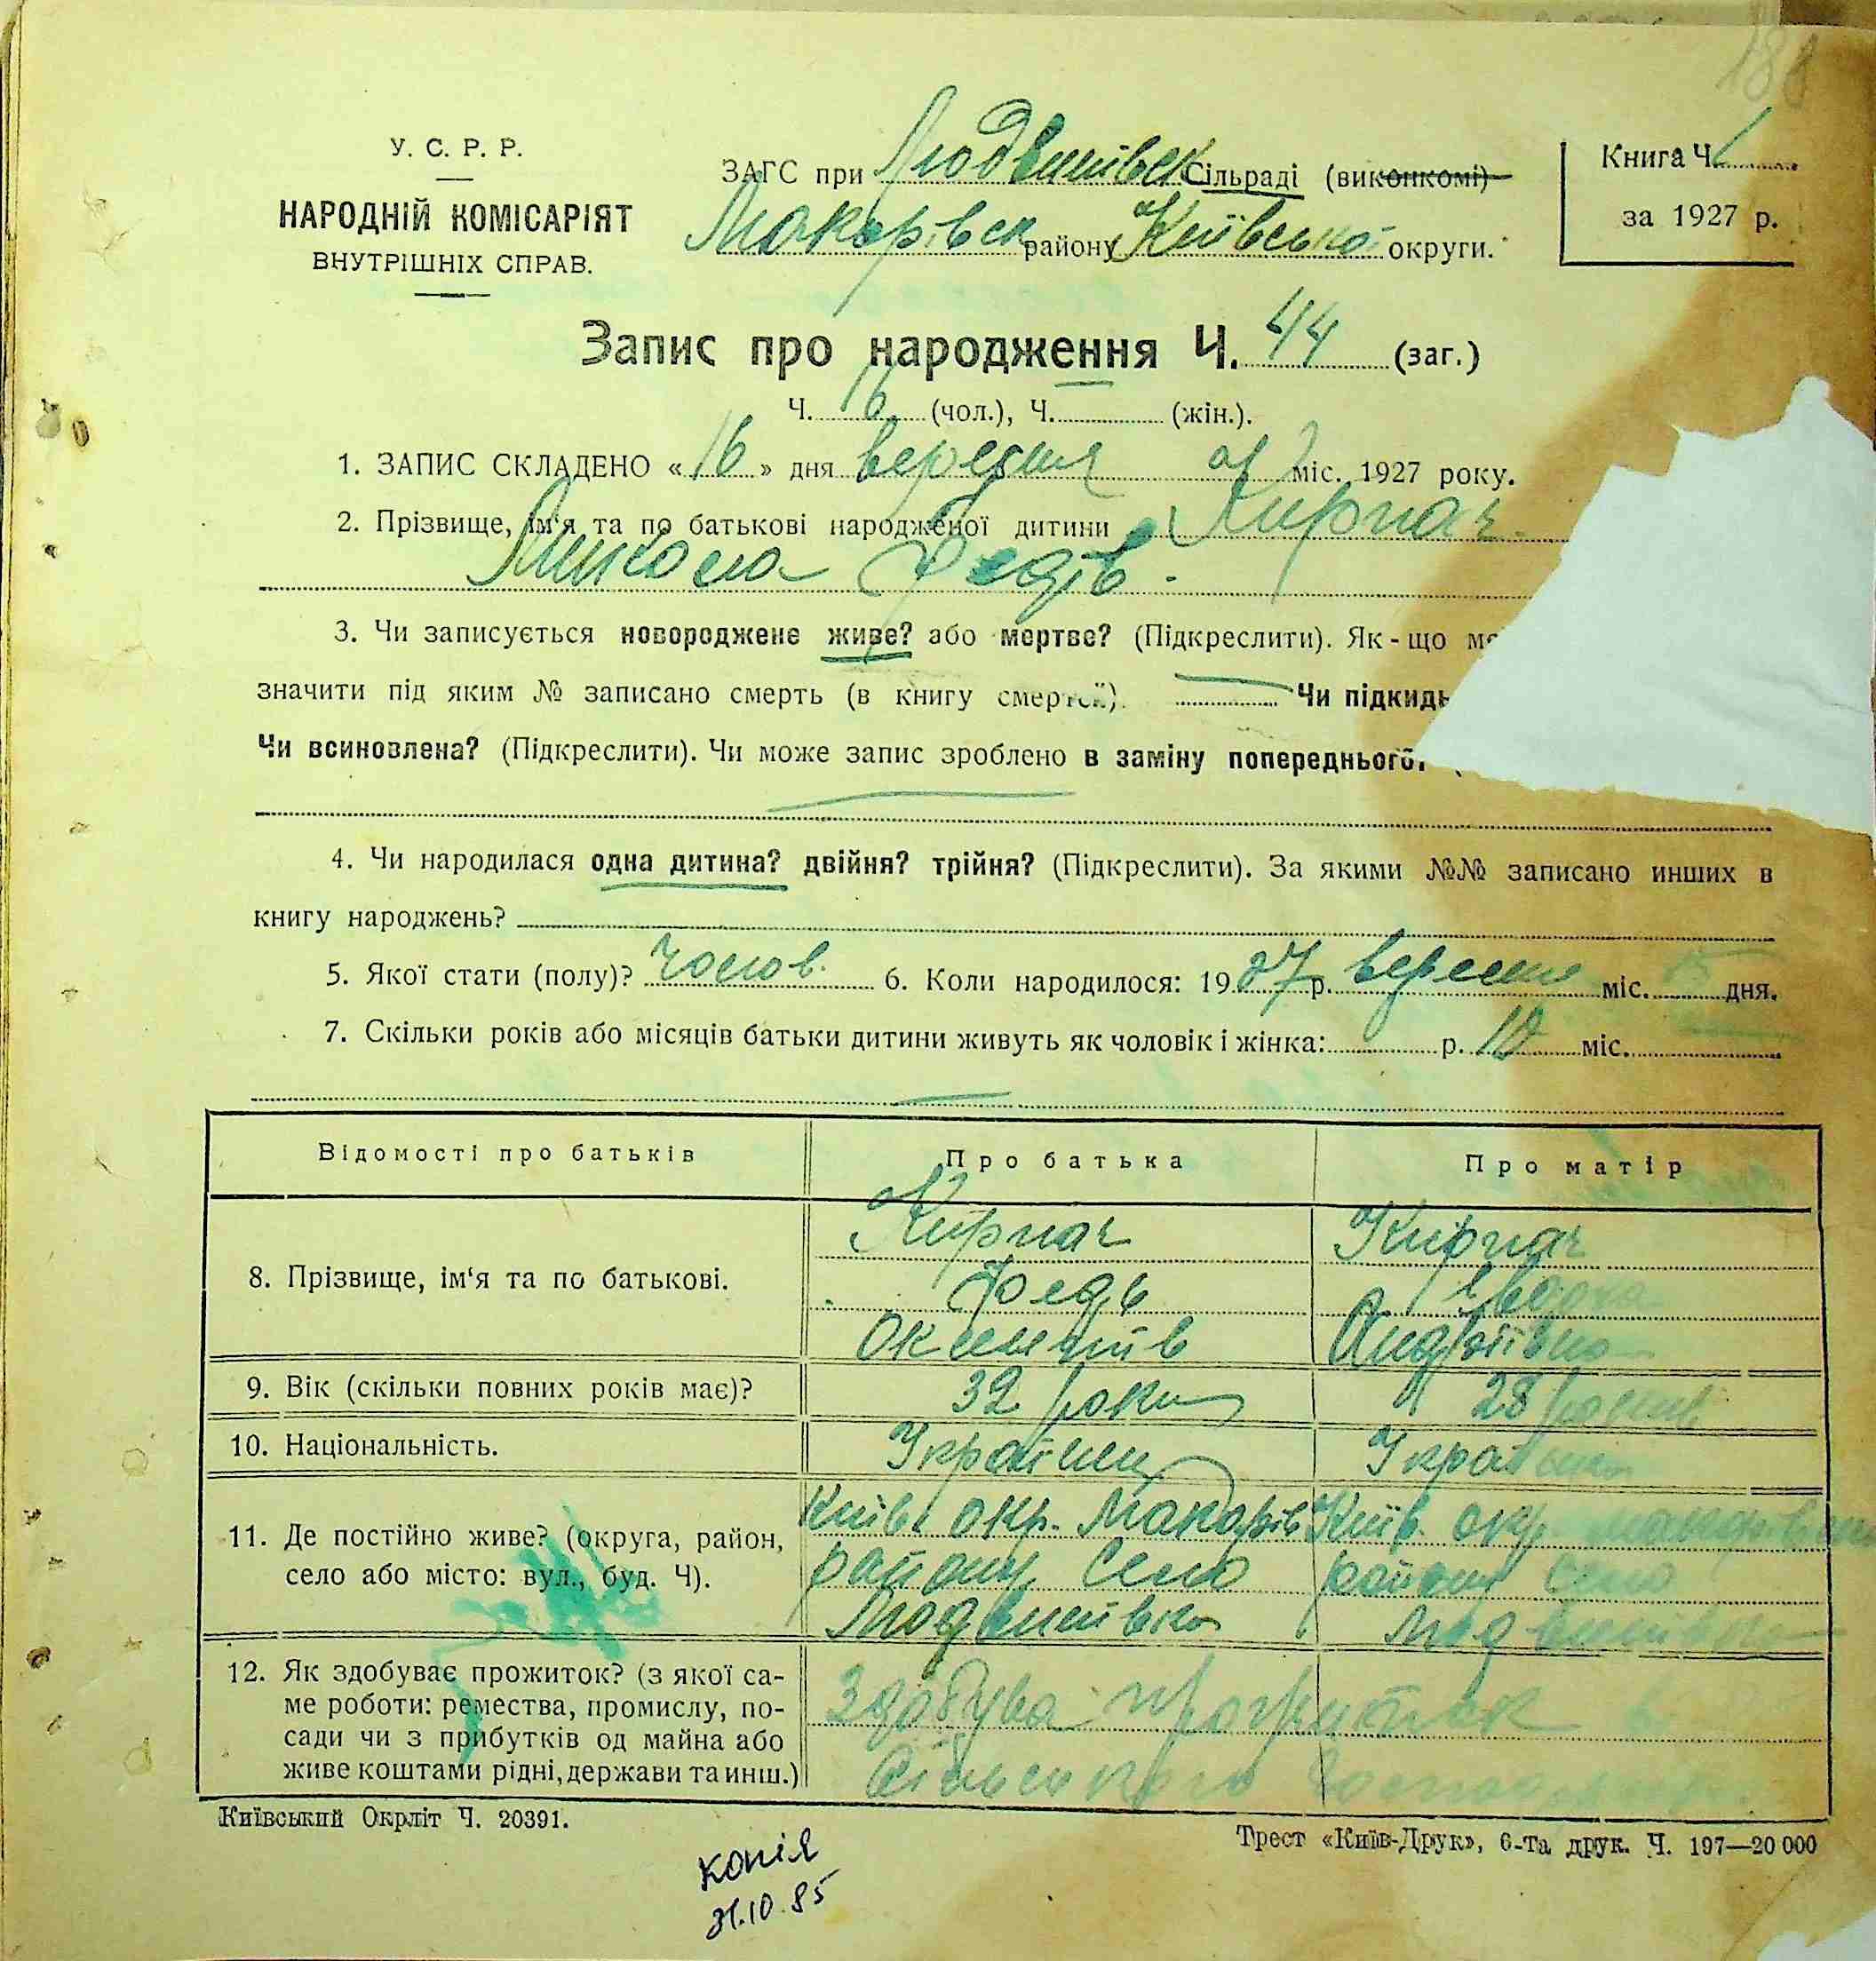 188
У. С. Р. Р.
НАРОДНІЙ КОМІСАРІЯТ
ВНУТРІШНІХ СПРАВ.
ЗАГС при Людвинівськ Сільраді (виконкомі)
Макарівськ району Київської округи.
Книга Ч. 1
за 1927 р.
Запис про народження Ч. 44 (заг.)
Ч. 16 (чол.), Ч. (жін.).
1. ЗАПИС СКЛАДЕНО «16» дня вересня міс. 1927 року.
2. Прізвище, ім'я та по батькові народженої дитини Кирпач
Микола Федів.
3. Чи записується новороджене живе? або мертве? (Підкреслити). Як-що ме
значити під яким № записано смерть (в книгу смертей). Чи підкидь
Чи всиновлена? (Підкреслити). Чи може запис зроблено в заміну попереднього? (
4. Чи народилася одна дитина? двійня? трійня? (Підкреслити). За якими №№ записано инших в
книгу народжень?
5. Якої стати (полу)? чолов. 6. Коли народилося: 1927 р. вересня міс. 15 дня.
7. Скільки років або місяців батьки дитини живуть як чоловік і жінка: р. 10 міс.
Відомості про батьків Про батька Про матір
8. Прізвище, ім'я та по батькові.
Кирпач Кирпач
Федь
Андріївна
9. Вік (скільки повних років має)? 32 роки 28 років
10. Національність. Українец Українка
11. Де постійно живе? (округа, район,
село або місто: вул., буд. Ч).
Київ. окр. Макарів Київ. окр. Макарівськ
району Село району Село
Людвинівка Людвинівка
12. Як здобуває прожиток? (з якої са-
ме роботи: ремества, промислу, по-
сади чи з прибутків од майна або
живе коштами рідні, держави та инш.)
Здобува прожиток з
сільського господар
Київський Окрліт Ч. 20391.
Трест «Київ-Друк», 6-та друк. Ч. 197—20 000
копія
31.10.85